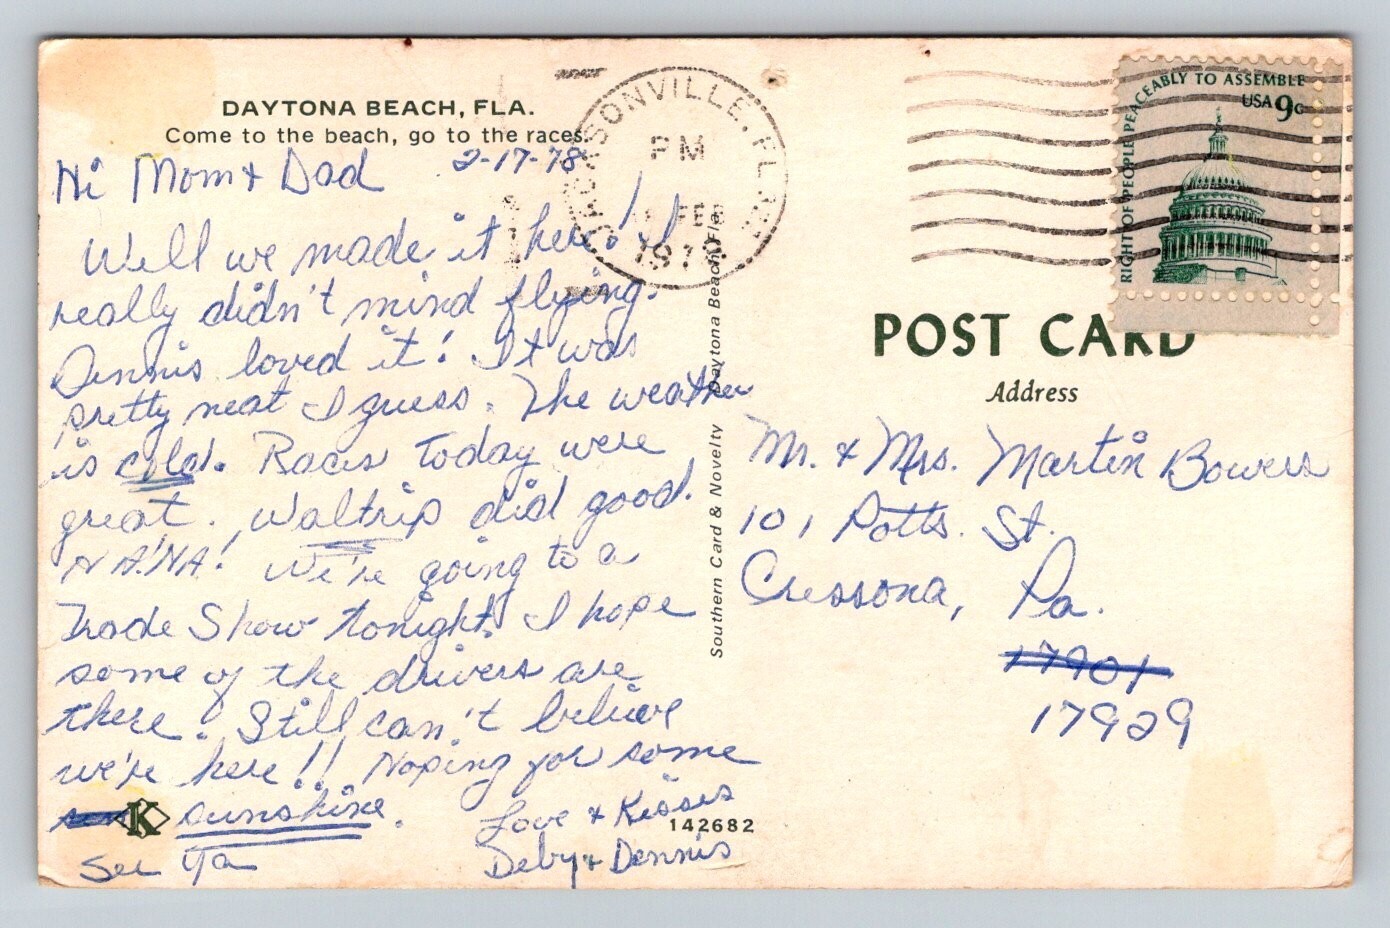 DAYTONA BEACH, FLA.
Come to the beach, go to the races.
2-17-78
Hi Mom & Dad
Well we made it here! I
really didn't mind flying.
Dennis loved it! It was
pretty neat I guess. The weather
is cold. Races today were
great. Waltrip did good.
NA!NA! We're going to a
Trade Show tonight. I hope
some of the drivers are
there. Still can't believe
we're here!! Hoping for some
sunshine.
See Ya
Love & Kisses
Deby & Dennis
K
142682
Southern Card & Novelty Daytona Beach, Fla.
JACKSONVILLE, FL
PM
FEB
1978
RIGHT OF PEOPLE PEACEABLY TO ASSEMBLE
USA 9c
POST CARD
Address
Mr. & Mrs. Martin Bowers
101 Potts. St.
Cressona, Pa.
17901
17929